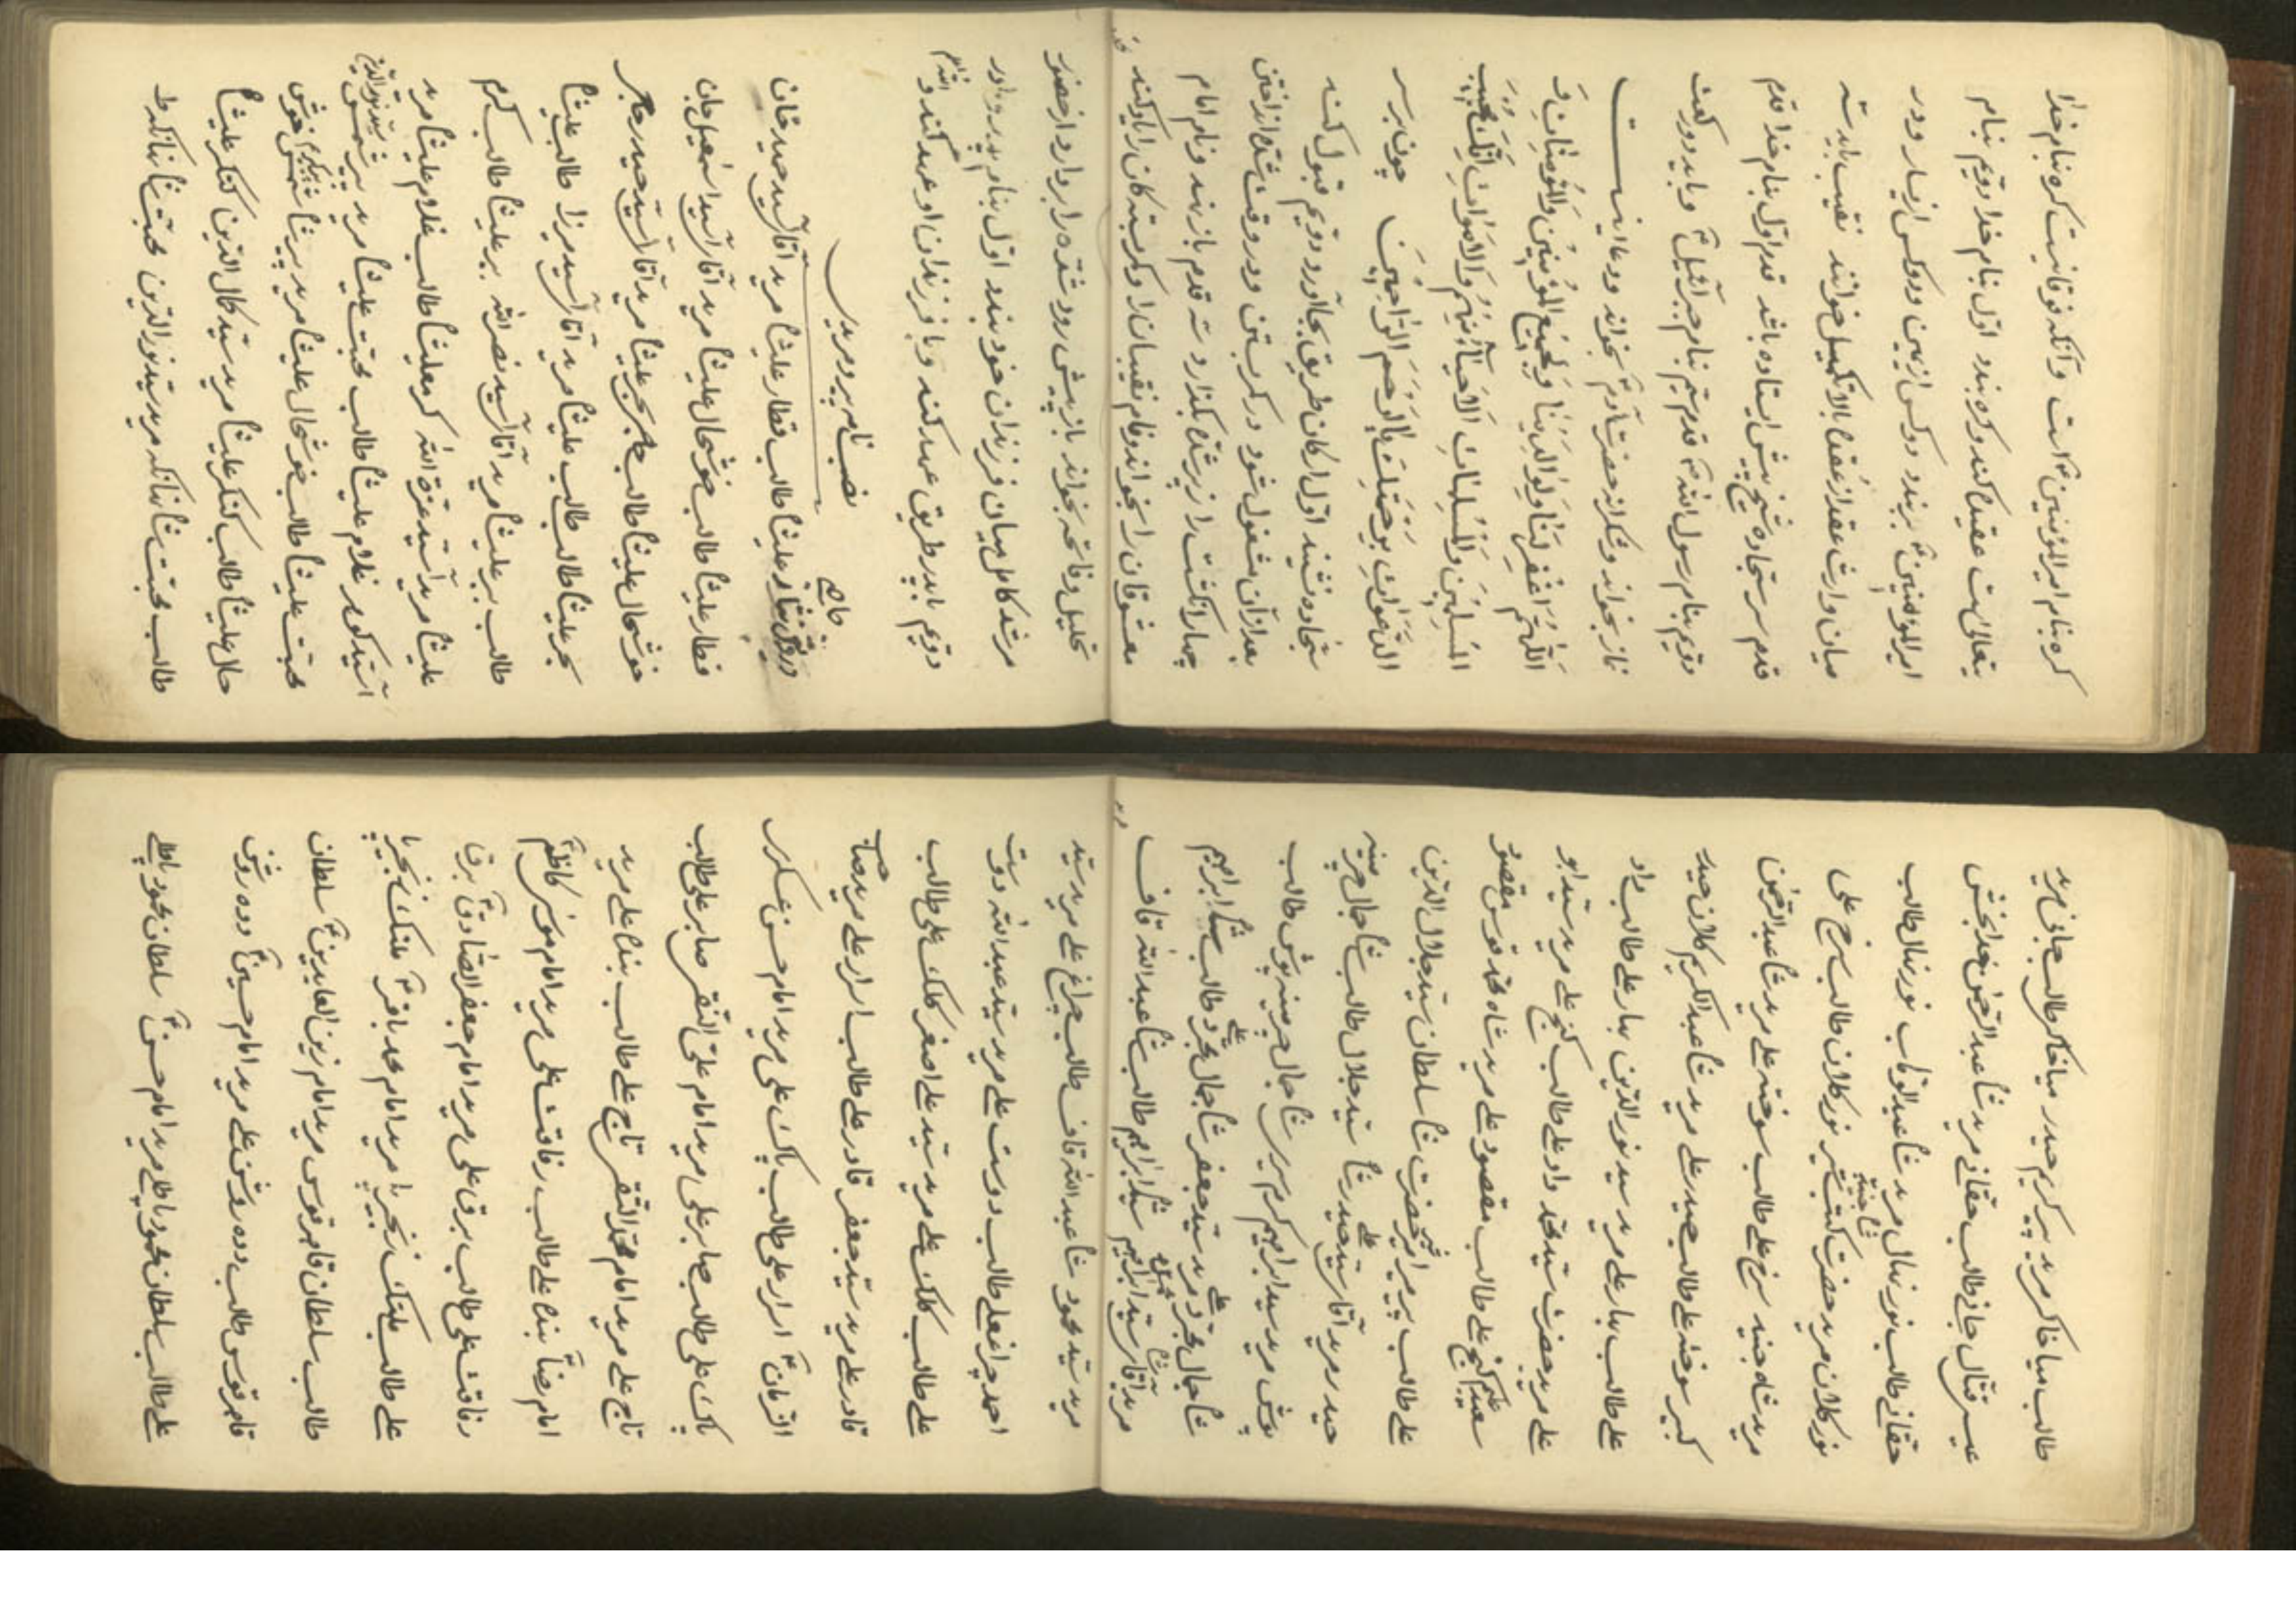 کره بنام امیر المؤمنین است وآنکه فوقانیست کره بنام خدا
یتعالی است عقید کند وکره بندد اوّل بنام خدا دویم بنام
امیر المؤمنین بربندد ودوکس از یمین ودوکس از یسار ودر
میان وارث عقد از عقدها بالا تکمیل خوانند نقیب باید سه
قدم سر سجّاده شیخ پیش ایستاده باشد قدم اوّل بنام خدا قدم
دویم بنام رسول الله قدم سیم بنام جبرائیل وباید دو رکعت
نماز بخواند وشکرانه حضرت آدم بخواند ودعا اینست
اللّهم اغفر لنا ولوالدینا ولجمیع المؤمنین والمؤمنات و
المسلمین والمسلمات الاحیاء منهم والاموات انّک مجیب
الدّعوات برحمتک یا ارحم الرّاحمین چون بر سر
سجّاده نشیند اوّل ارکان طریق بجا آورد دویم قبول کند
بعد از آن مشغول شود در کمر بستن ودر وقت شدّ انداختن
چهار انکشت را زیر شدّه بکذارد سه قدم باز بند ونام امام
معشوقان را بخواند ونام نقیبان را وکمربستکان را یاد کند
تحلیل وفاتحه بخواند باز پیش رود شدّه را بردارد از حضور
مرشد کامل میان فرزندان خود بندد اوّل بنام پدر ومادر
دویم باید طریق عهد کند وبا فرزندان او عهد کند و
نصب نامه پیر ومرید
درویش علیشا طالب قطار علیشا مرید اقا سید حیدر خان
قطار علیشا طالب خوشحال علیشا مرید اقا سید اسمعیل خان
خوشحال علیشا طالب بحر علیشا مرید اقا سید حیدر
بحر علیشا طالب طالب علیشا مرید اقا سید میرزا طالب علیشا
طالب ببر علیشا مرید اقا سید نصر الله ببر علیشا طالب کرم
علیشا مرید سید عزة الله کرمعلیشا طالب غلام علیشا مرید
غلام علیشا طالب محبّت علیشا مرید
محبّت علیشا طالب خوشحال علیشا مرید
حال علیشا طالب کنکر علیشا مرید سید کمال الدین کنکر علیشا
طالب محبّت شا بنانکه مرید سید نور الدین محبّت شا بنانکه ط
طالب میا خاکر مرید پیر کریم حیدر میا خاکر طالب جانی مرید
میر قتال جانی طالب حقانی مرید شا عبد الرحمن خدا بخش
حقانی طالب نور نهال مرید شا عبد الوهاب نور نهال طالب
نور کلان مرید حضرت نور کلان طالب سرخ علی
مرید شاه جنید سرخ علی طالب سوخته علی مرید شا عبد الرحمن
کبیر سوخته علی طالب حیدر علی مرید شا عبد الکریم کلان حیدر
علی طالب بهار علی مرید سید نور الدین بهار علی طالب داد
علی مرید حضرت سید محمد داد علی طالب کنج علی مرید سید ابو
سعید کنج علی طالب مقصود علی مرید شاه محمد قدوس مقصود
علی طالب پیر میر مرید حضرت شا سلطان سید جلال الدین
حیدر مرید اقا سید حیدر شا سید جلال طالب شا جمال چرمینه
پوش مرید سید ابراهیم کرم سیر شا جمال چرمینه پوش طالب
شا جمال مجرّد مرید سید جعفر شا جمال مجرّد طالب شا ابراهیم
مرید اقا سید ابراهیم شا ابراهیم طالب شا عبد الله قاف
مرید سید محمود شا عبد الله قاف طالب چراغ علی مرید سید
احمد چراغعلی طالب دوست علی مرید سید عبد الله دوست
علی طالب کلک علی مرید سید علی اصغر کلک علی طالب
قادر علی مرید سید جعفر قادر علی طالب اسرار علی مرید صاحب
الزمان اسرار علی طالب پاک علی مرید امام حسن عسکری
پاک علی طالب صابر علی مرید امام علی النقی صابر علی طالب
تاج علی مرید امام محمد التقی تاج علی طالب بندا علی مرید
امام رضا بندا علی طالب رفاقت علی مرید امام موسی کاظم
رفاقت علی طالب برق علی مرید امام جعفر الصّادق برق
علی طالب ملنک زنجیرپا مرید امام محمد باقر ملنک زنجیرپا
طالب سلطان قاهر قوس مرید امام زین العابدین سلطان
قاهر قوس طالب دوده روشن علی مرید امام حسین دوده روشن
علی طالب سلطان محمود باطلی مرید امام حسن سلطان محمود باطلی